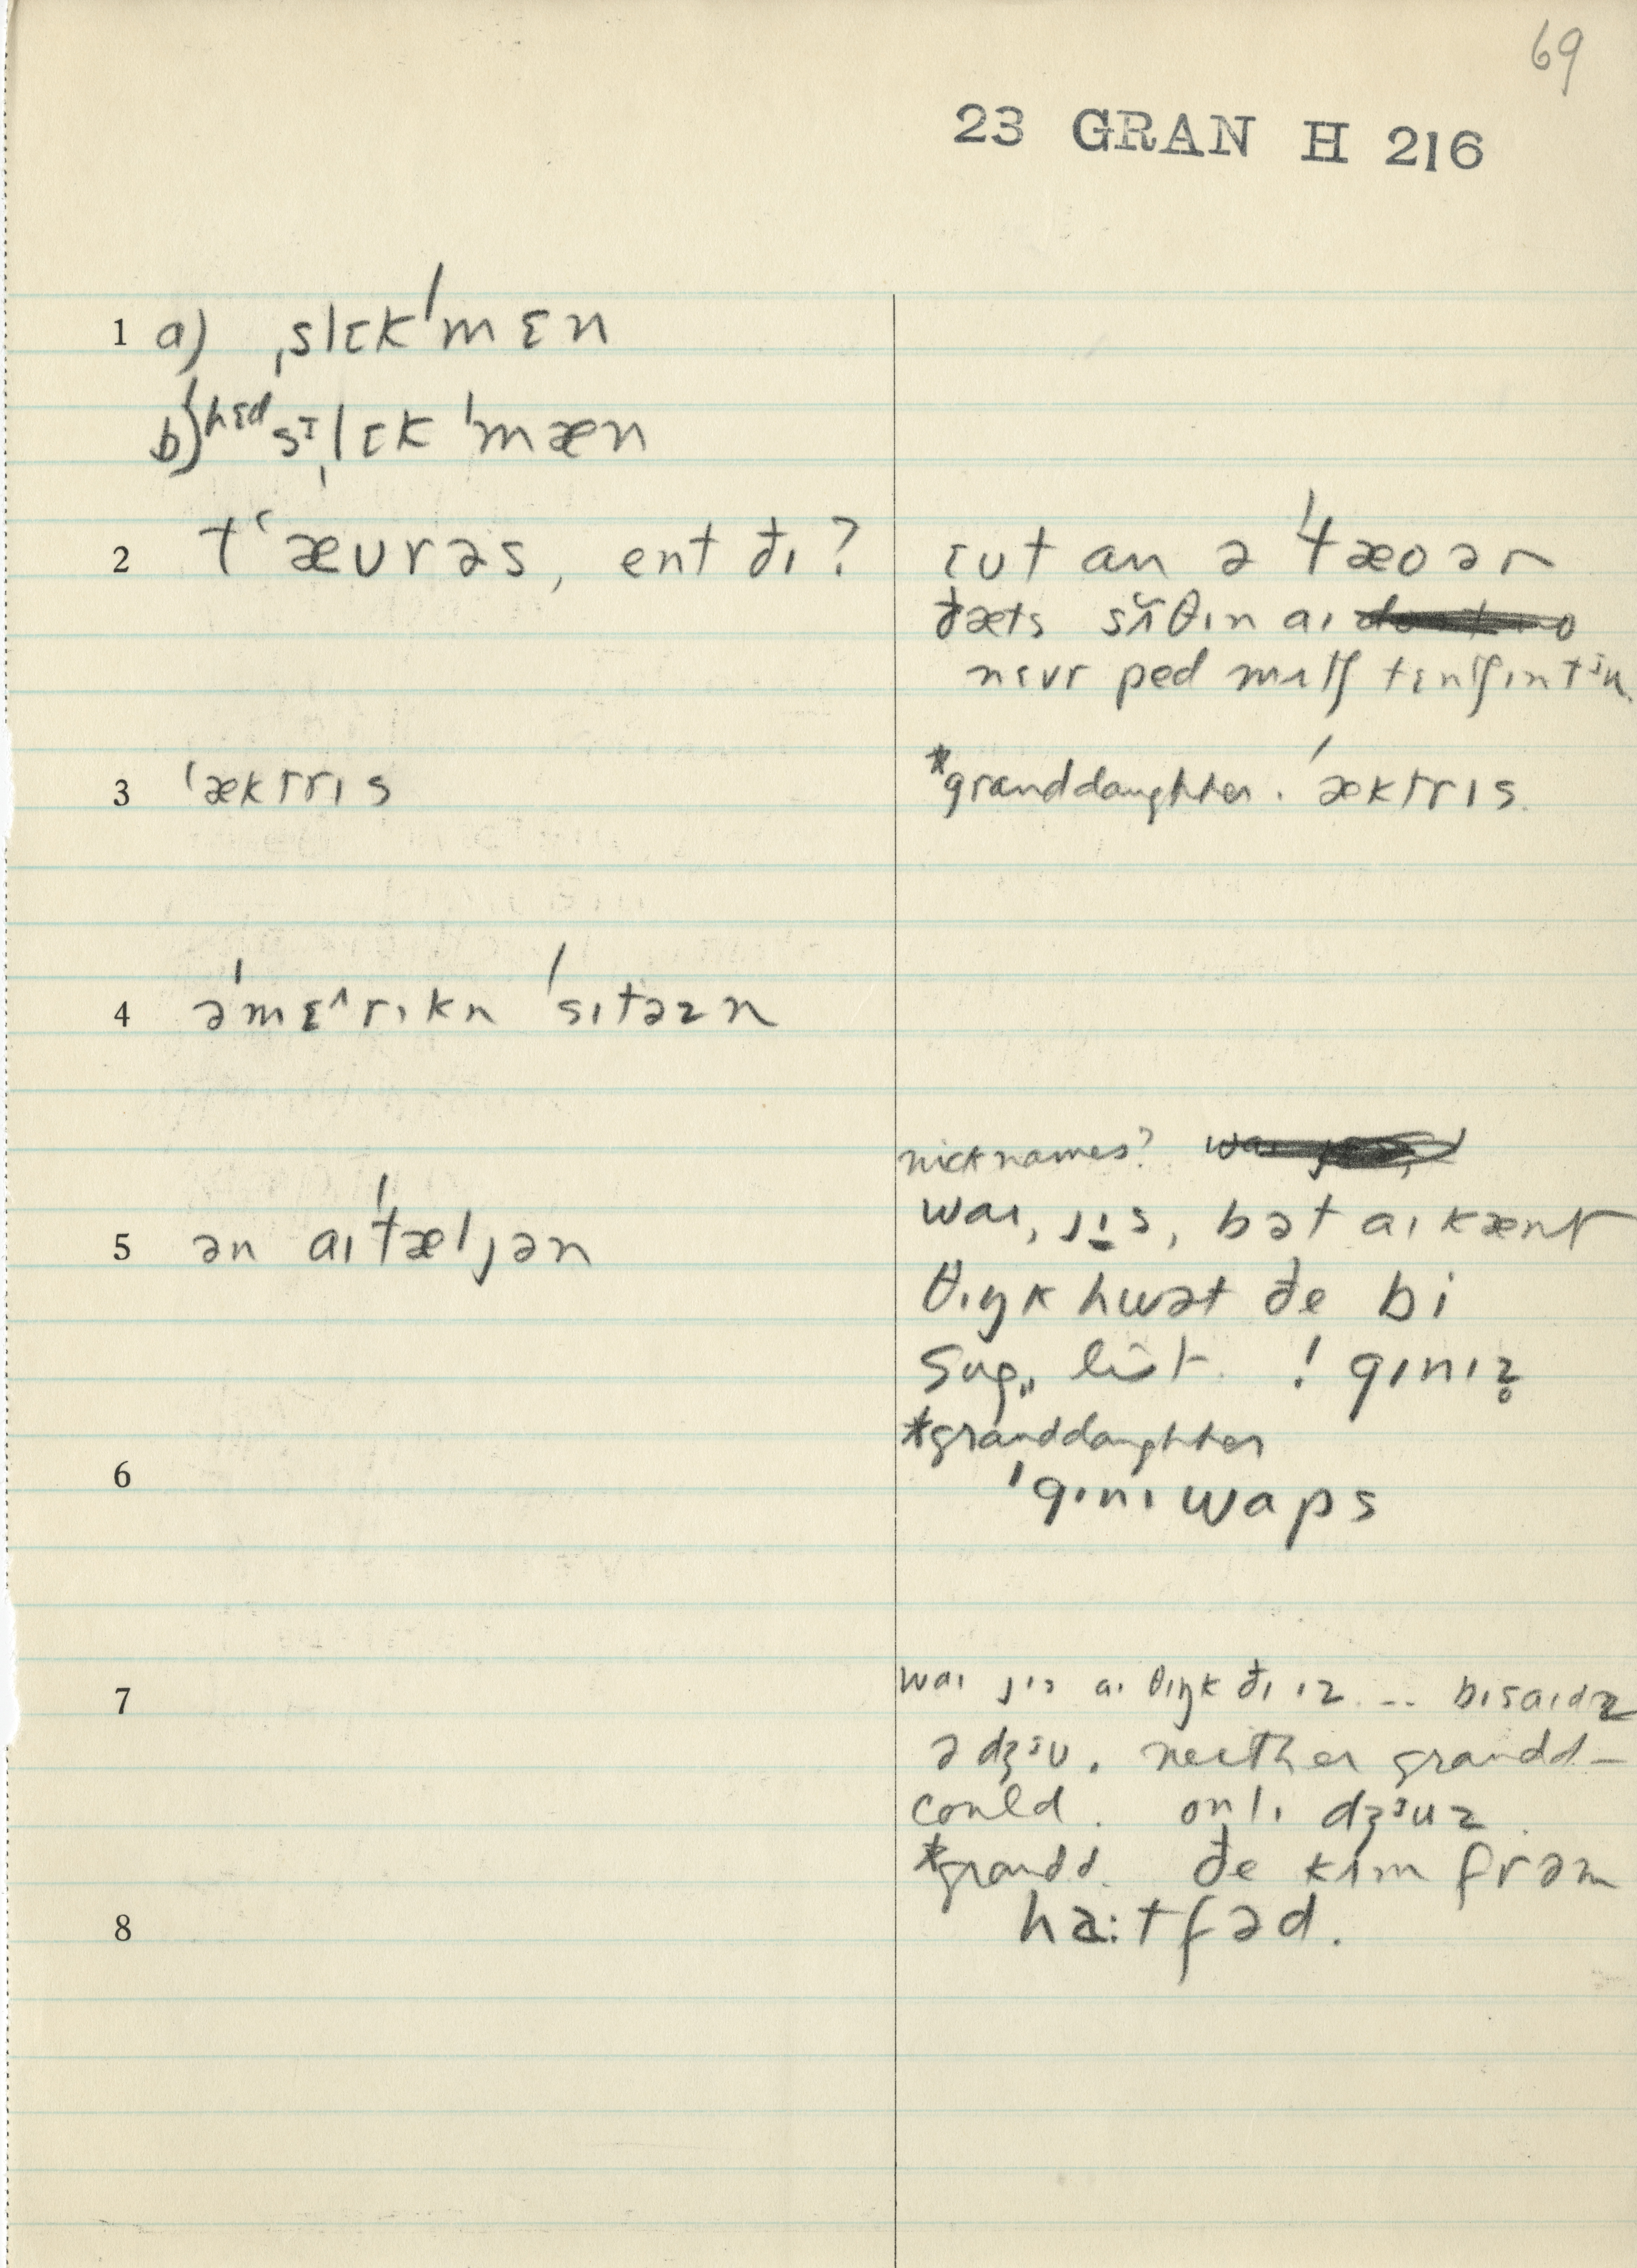 69
23 GRAN H 216
1 a) ˌslɛkˈmɛn
b) ˈhɛd sɪˌlɛk ˈmæn
2 tʿæʊrəs, ent ðɪ?
ɛut an ə ˈtæoər
ðæts sʌ̆θɪn aɪ
nɛvr ped mʌtʃ tɛnʃɪn tᶤu
3 ˈæktrɪs
*granddaughter. ˈæktrɪs.
4 əˈmɛ^rɪkn ˈsɪtəzn
nicknames?
5 ən aɪˈtæljən
waɪ, jɪs, bət aɪ kænt
θɪŋk hwət ðe bi
Sug. list. ! gɪnɪz̥
*granddaughter
6
ˈgɪnɪ waps
7
waɪ jɪs aɪ θɪŋk ðɪ ɪz ... bɪsaɪdz
ə dʒᶤu. neither grandd–
could. onlɪ dʒᶤuz.
*grandd. ðe kɪm frəm
8
ha:tfəd.